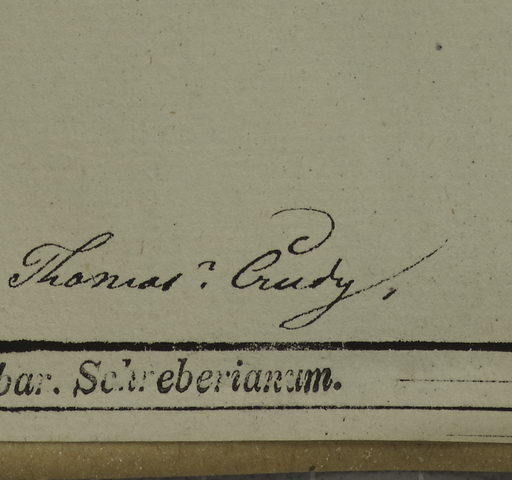 Thomas? Crudy,
bar. Schreberianum.